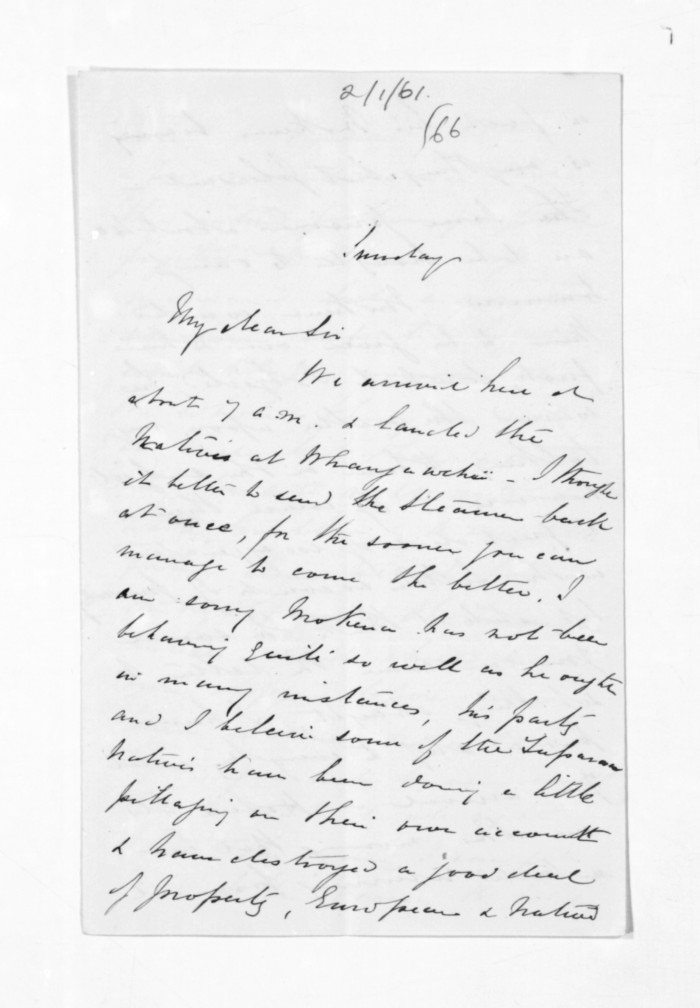 2/1/61.
(66
Tuesday
My dear Sir
We arrived here at
about 7 a m. & landed the
Natives at Whangawehi - I though
it better to send the Steamer back
at once, for the sooner you can
manage to come the better. I
am sorry Mokena has not been
behaving quite so well as he ought
in many instances, his party
and I beleive some of the Turanga
Natives have been doing a little
pillaging on their own account
& have destroyed a good deal
of property, European & Native